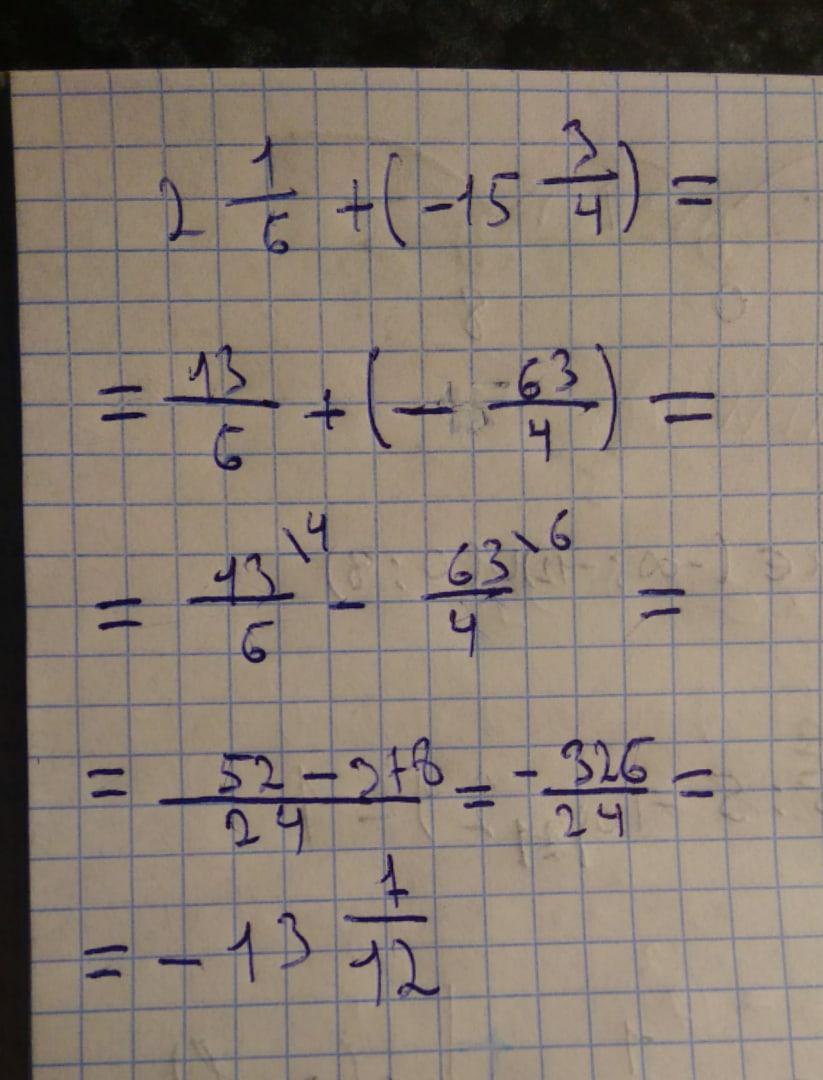 2 1/6 + (-15 3/4) =
= 13/6 + (- 63/4) =
= 13\4/6 - 63\6/4 =
= 52 - 378/24 = - 326/24 =
= - 13 7/12